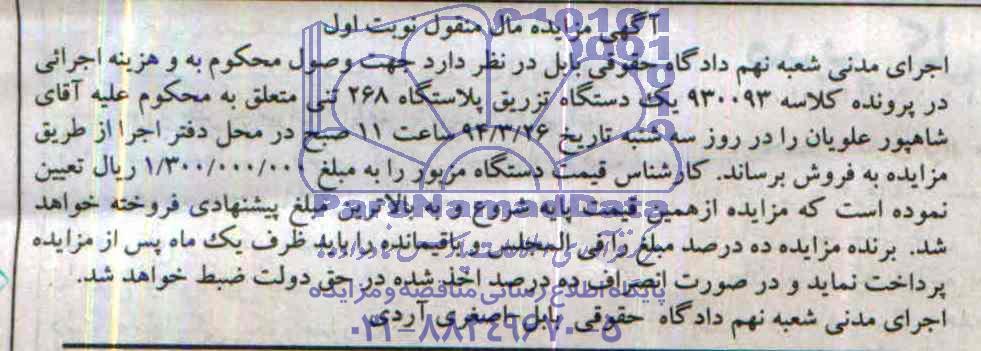 آگهی مزایده مال منقول نوبت اول
اجرای مدنی شعبه نهم دادگاه حقوقی بابل در نظر دارد جهت وصول محکوم به و هزینه اجرائی
در پرونده کلاسه ۹۳۰۰۹۳ یک دستگاه تزریق پلاستگاه ۲۶۸ تنی متعلق به محکوم علیه آقای
شاهپور علویان را در روز سه شنبه تاریخ ۹۴/۳/۲۶ ساعت ۱۱ صبح در محل دفتر اجرا از طریق
مزایده به فروش برساند. کارشناس قیمت دستگاه مزبور را به مبلغ ۱/۳۰۰/۰۰۰/۰۰۰ ریال تعیین
نموده است که مزایده ازهمین قیمت پایه شروع و به بالاترین مبلغ پیشنهادی فروخته خواهد
شد. برنده مزایده ده درصد مبلغ را فی المجلس و باقیمانده را باید ظرف یک ماه پس از مزایده
پرداخت نماید و در صورت انصراف ده درصد اخذ شده در حق دولت ضبط خواهد شد.
اجرای مدنی شعبه نهم دادگاه حقوقی بابل-اصغری آردی
ParsNamadData
پایگاه اطلاع رسانی مناقصه و مزایده
۰۲۱-۸۸۳۴۹۶۷۰-۵